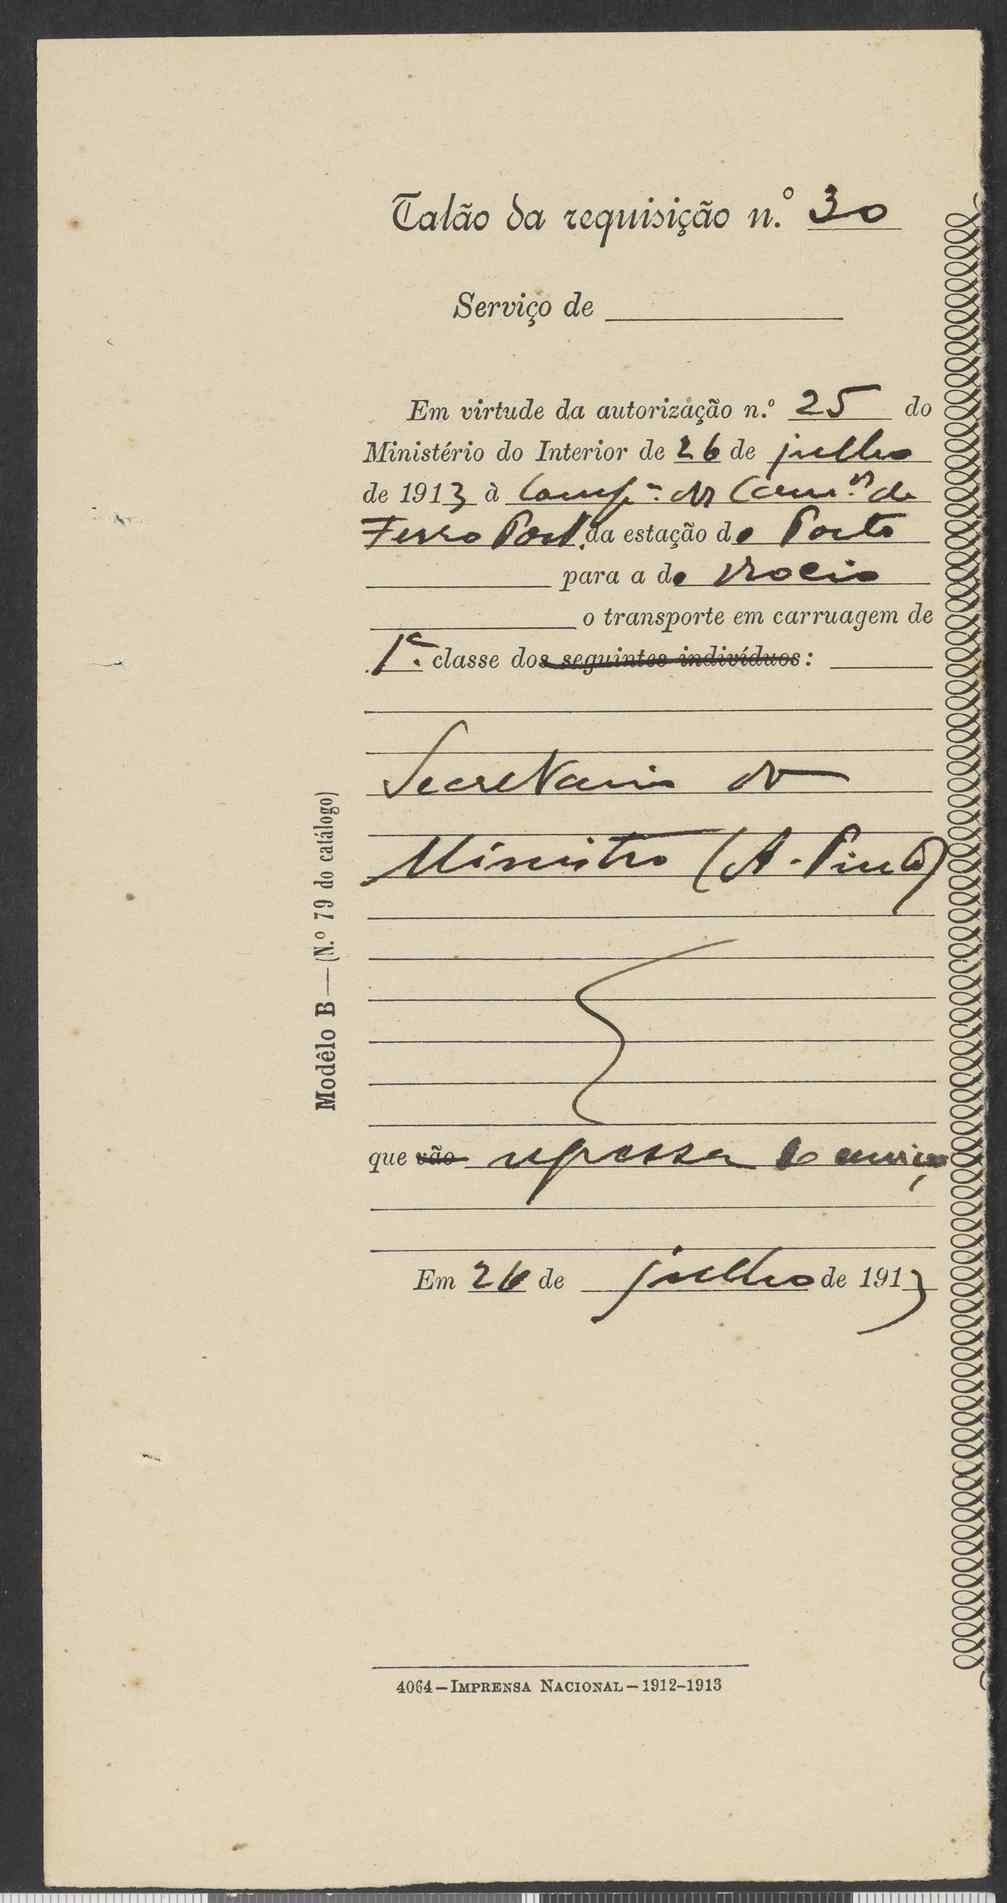 Talão da requisição n.º 30
Serviço de
Em virtude da autorização n.º 25 do
Ministério do Interior de 26 de julho
de 1913 à Comp.ª dos Cam.os de
Ferro Port. da estação do Porto
para a do Rocio
o transporte em carruagem de
1ª. classe dos seguintes indivíduos:
Secretario do
Ministro (A. Pinto)
que vão regressa de serviço
Em 26 de julho de 1913
Modêlo B—(N.º 79 do catálogo)
4064—Imprensa Nacional—1912-1913